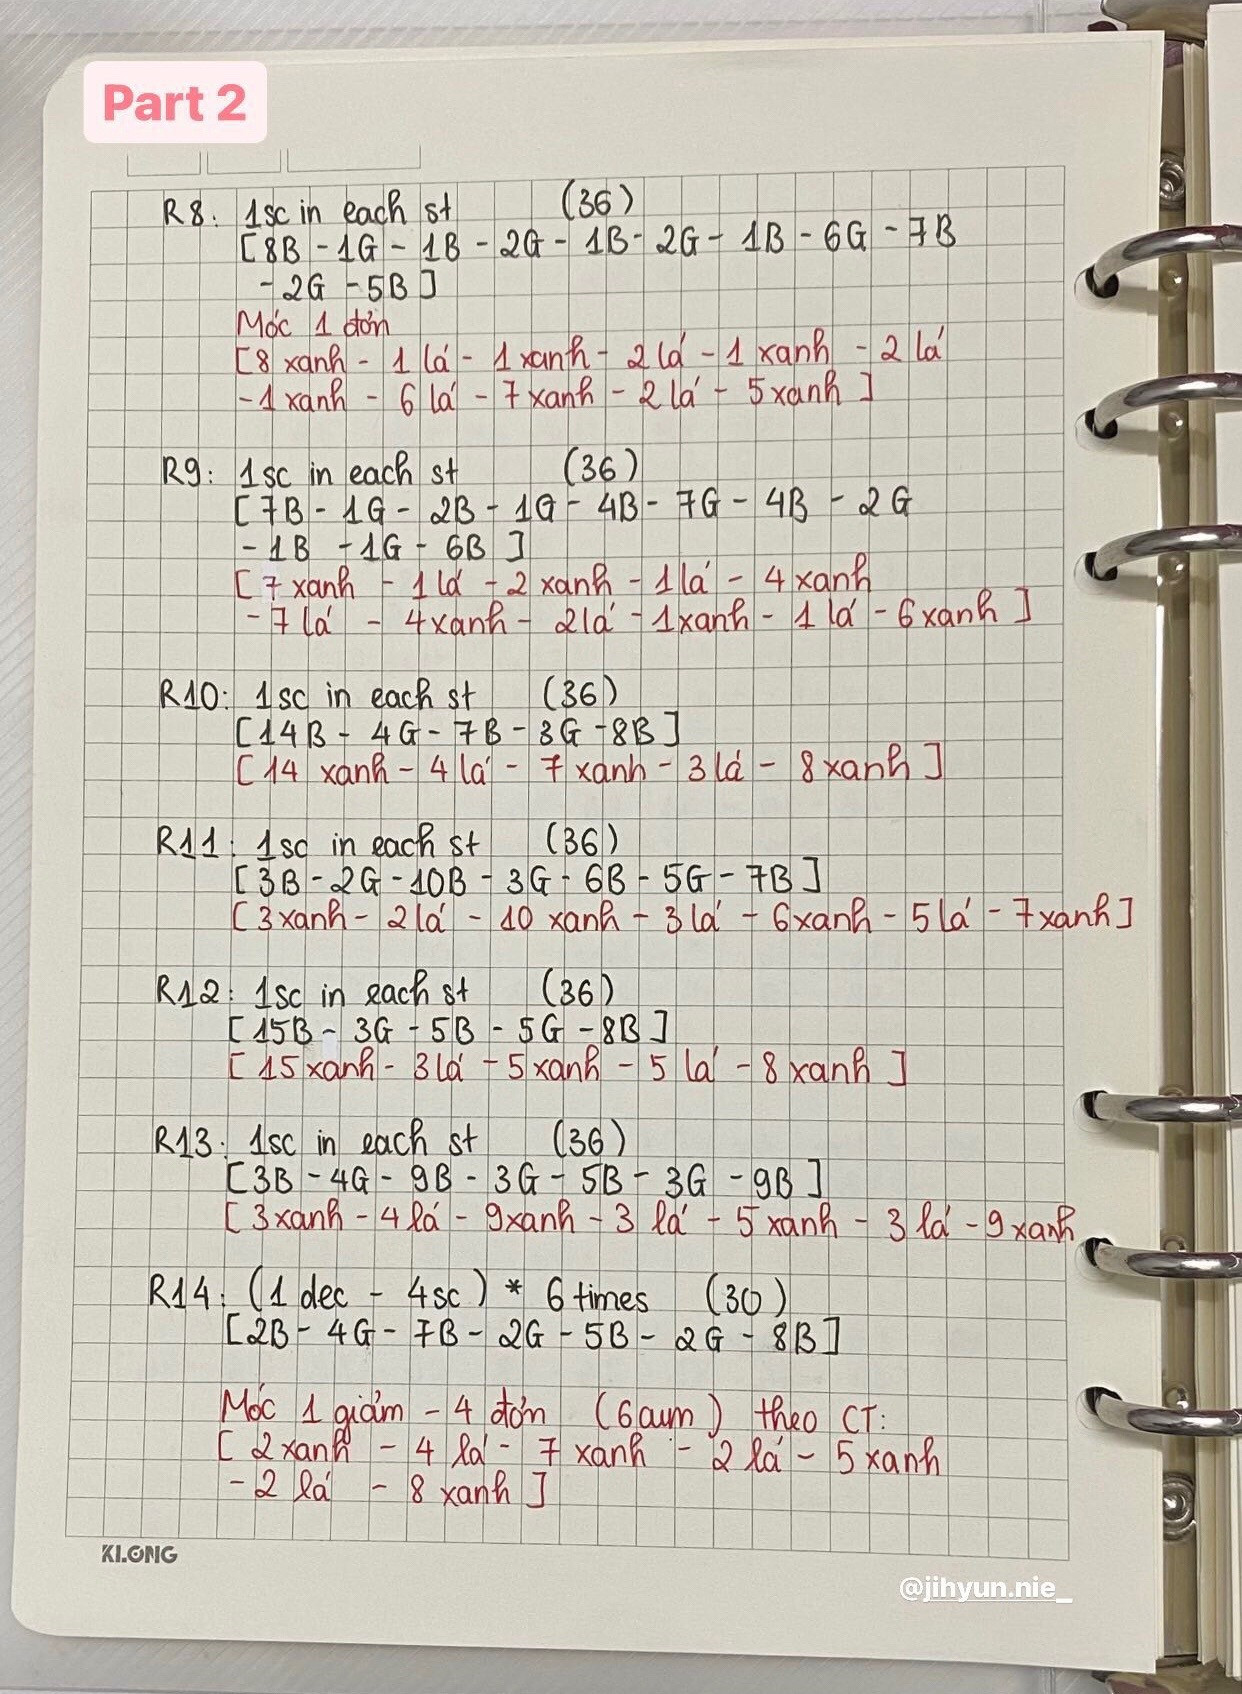 Part 2
R8: 1sc in each st (36)
[8B - 1G - 1B - 2G - 1B - 2G - 1B - 6G - 7B
- 2G - 5B]
Móc 1 đơn
[8 xanh - 1 lá - 1 xanh - 2 lá - 1 xanh - 2 lá
- 1 xanh - 6 lá - 7 xanh - 2 lá - 5 xanh]
R9: 1sc in each st (36)
[7B - 1G - 2B - 1G - 4B - 7G - 4B - 2G
- 1B - 1G - 6B]
[7 xanh - 1 lá - 2 xanh - 1 lá - 4 xanh
- 7 lá - 4 xanh - 2 lá - 1 xanh - 1 lá - 6 xanh]
R10: 1sc in each st (36)
[14B - 4G - 7B - 3G - 8B]
[14 xanh - 4 lá - 7 xanh - 3 lá - 8 xanh]
R11: 1sc in each st (36)
[3B - 2G - 10B - 3G - 6B - 5G - 7B]
[3 xanh - 2 lá - 10 xanh - 3 lá - 6 xanh - 5 lá - 7 xanh]
R12: 1sc in each st (36)
[15B - 3G - 5B - 5G - 8B]
[15 xanh - 3 lá - 5 xanh - 5 lá - 8 xanh]
R13: 1sc in each st (36)
[3B - 4G - 9B - 3G - 5B - 3G - 9B]
[3 xanh - 4 lá - 9 xanh - 3 lá - 5 xanh - 3 lá - 9 xanh
R14: (1 dec - 4sc) * 6 times (30)
[2B - 4G - 7B - 2G - 5B - 2G - 8B]
Móc 1 giảm - 4 đơn (6 cụm) theo CT:
[2 xanh - 4 lá - 7 xanh - 2 lá - 5 xanh
- 2 lá - 8 xanh]
KLONG
@jihyun.nie_